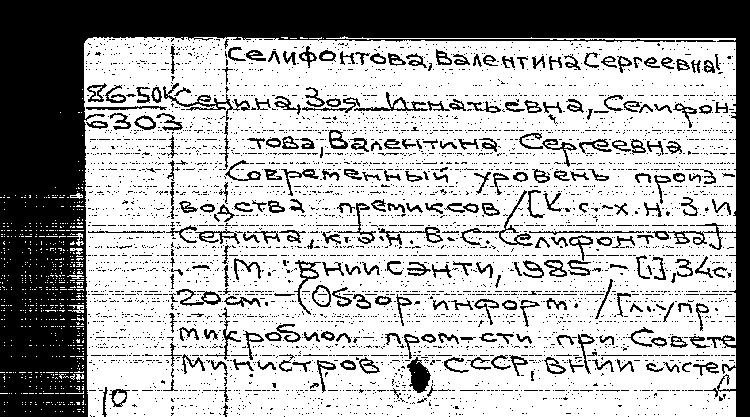 Селифонтова, Валентина Сергеевна.
86-50К Сенина, Зоя Игнатьевна, Селифон-
6303
това, Валентина Сергеевна.
Современный уровень произ-
водства премиксов / [К. с.-х. н. З. И.
Сенина, к. э. н. В. С. Селифонтова]
. - М. : ВНИИСЭНТИ, 1985. - [1], 34 с.
20 см. - (Обзор. информ. / Гл. упр.
микробиол. пром-сти при Совете
Министров СССР, ВНИИ систем
10